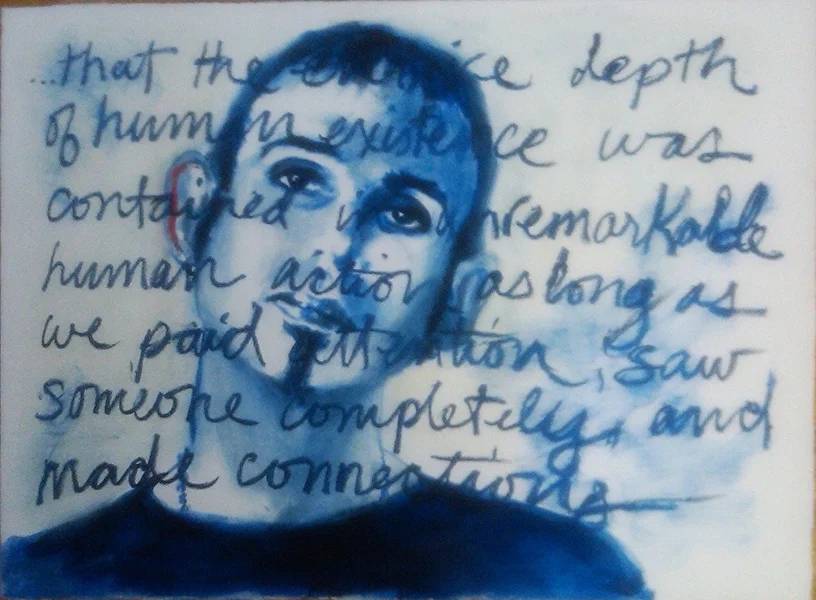 ...that the depth
of human existence was
contained in unremarkable
human action as long as
we paid attention, saw
someone completely, and
made connections